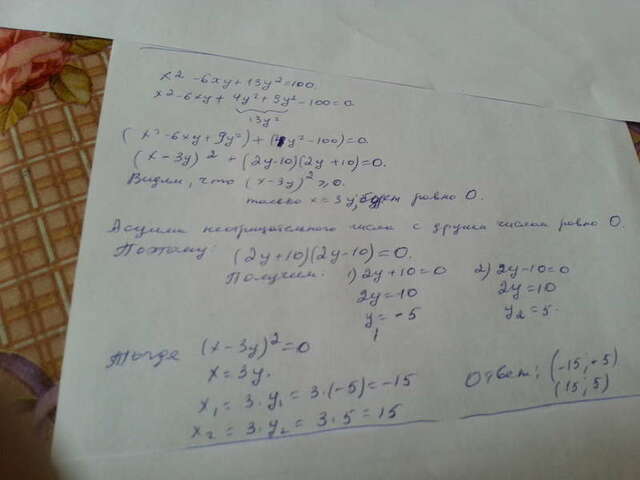 x² - 6xy + 13y² = 100.
x² - 6xy + 4y² + 9y² - 100 = 0.
13y²
(x² - 6xy + 9y²) + (4y² - 100) = 0.
(x - 3y)² + (2y - 10)(2y + 10) = 0.
Видим, что (x - 3y)² ≥ 0.
только x = 3y, будет равно 0.
А сумма неотрицательного числа с другим числом равно 0.
Поэтому: (2y + 10)(2y - 10) = 0.
Получим: 1) 2y + 10 = 0 2) 2y - 10 = 0
2y = -10 2y = 10
y₁ = -5 y₂ = 5.
Тогда (x - 3y)² = 0
x = 3y.
x₁ = 3·y₁ = 3·(-5) = -15
x₂ = 3·y₂ = 3·5 = 15
Ответ: (-15; -5)
(15; 5)